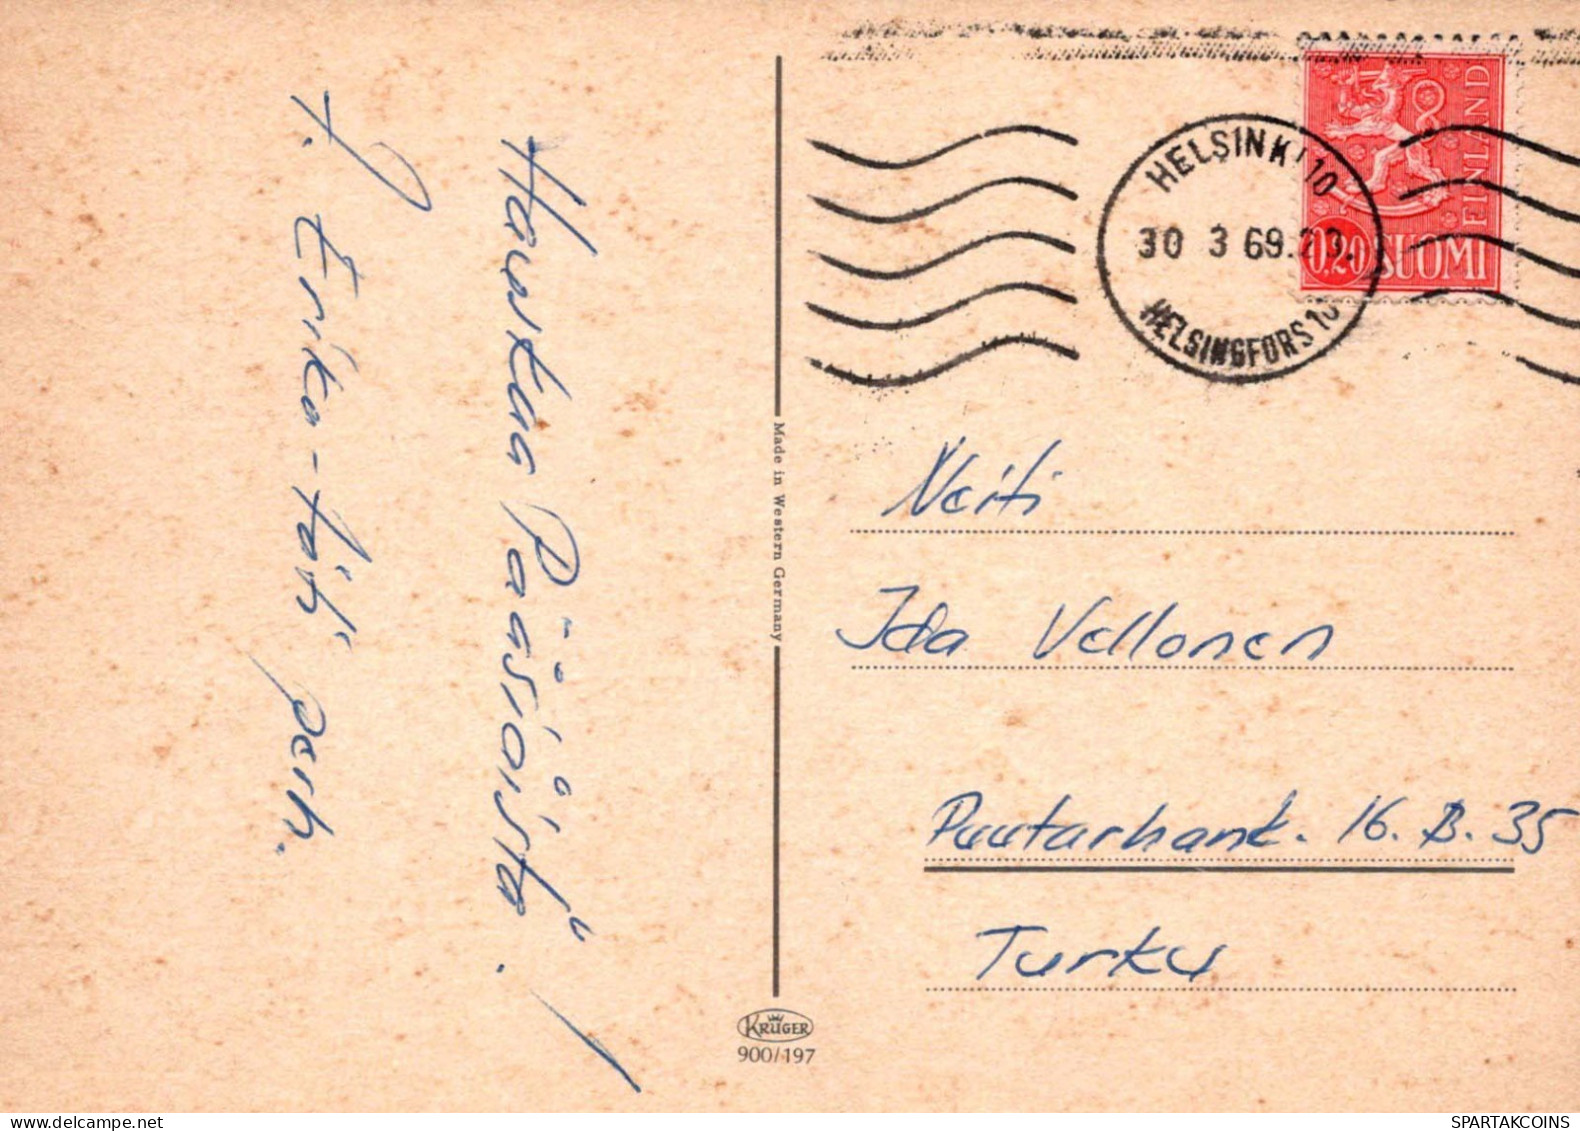 Hauskaa Pääsiäistä!
T. Erika-täti perh.
Made in Western Germany
KRÜGER
900/197
HELSINKI 10
30 3 69.20.
HELSINGFORS 10
FINLAND
0.20 SUOMI
Neiti
Ida Vellonen
Puutarhank. 16. B. 35
Turku
SPARTAKCOINS